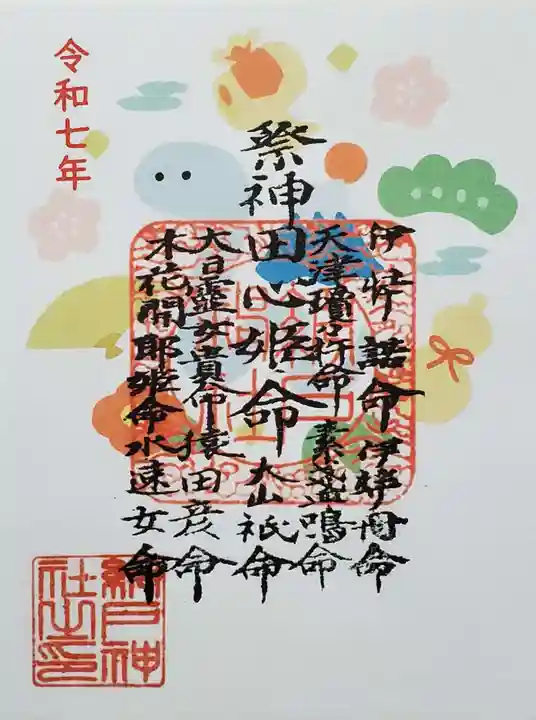 令和七年
祭神
伊弉諾命 伊弉冊命
天津瓊々杵命 素盞嗚命
田心姫命 大山祇命
大日霊女貴命 猿田彦命
木花開耶姫命 水速女命
網戸神
社之印